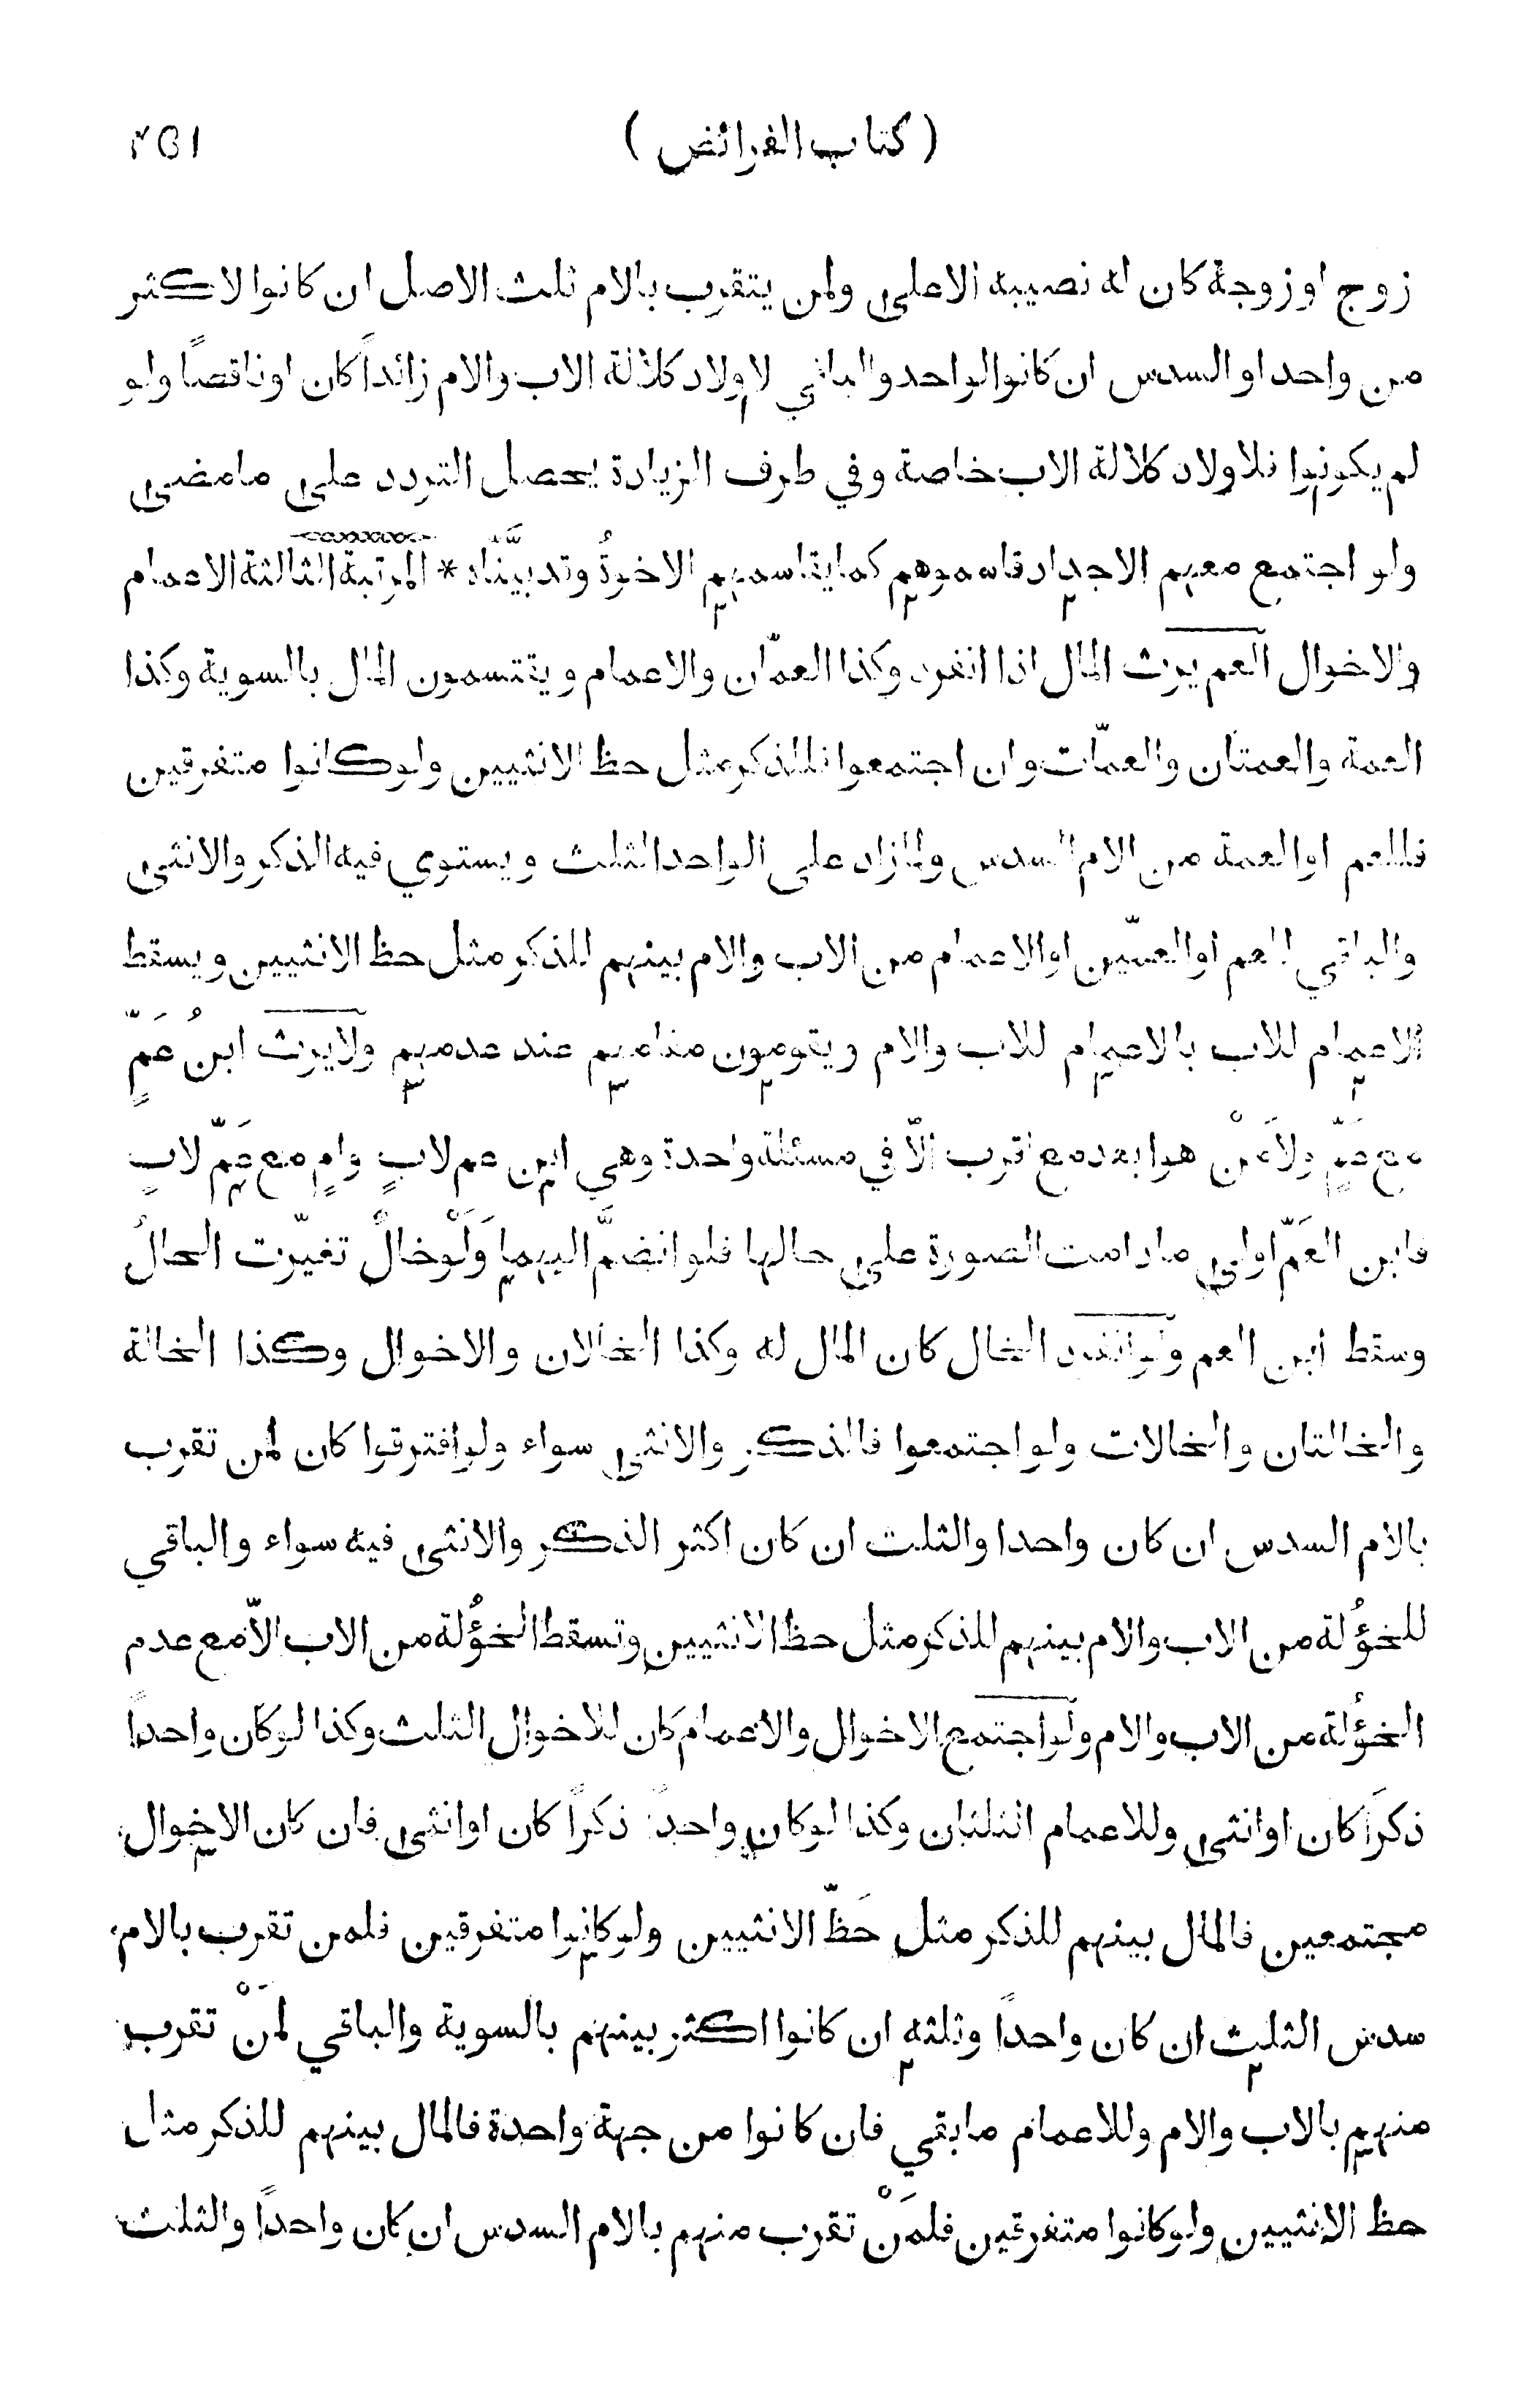 ( كتاب الفرائض ) ٢٥١
زوج او زوجة كان له نصيبه الاعلى ولمن يتقرب بالام ثلث الاصل ان كانوا لاكثر
من واحد او السدس ان كانوا لواحد والباقي لاولاد كلالة الاب والام زائداً كان او ناقصاً ولو
لم يكونوا فلاولاد كلالة الاب خاصة وفي طرف الزيادة يحصل التردد على ما مضى
ولو اجتمع معهم الاجداد قاسموهم كما يقاسمهم الاخوةُ وقد بيَّنّاه * المرتبة الثالثة الاعمام
والاخوال العم يرث المال اذا انفرد وكذا العمّان والاعمام ويقتسمون المال بالسوية وكذا
العمة والعمتان والعمّات وان اجتمعوا فللذكر مثل حظ الانثيين ولو كانوا متفرقين
فللعم او العمة من الام السدس ولما زاد على الواحد الثلث ويستوي فيه الذكر والانثى
والباقي للعم او العمّين او الاعمام من الاب والام بينهم للذكر مثل حظ الانثيين ويسقط
الاعمام للاب بالاعمام للاب والام ويقومون مقامهم عند عدمهم ولا يرث ابنُ عَمٍّ
مع عَمٍّ ولا مَنْ هو ابعد مع اقرب الاّ في مسئلة واحدة وهي ابن عم لابٍ وامٍ مع عَمّ لابٍ
فابن العَمّ اولى ما دامت الصورة على حالها فلو انضمَّ اليهما وَلَوْ خالٌ تغيّرت الحالُ
وسقط ابن العم ولو انفرد الخال كان المال له وكذا الخالان والاخوال وكذا الخالة
والخالتان والخالات ولو اجتمعوا فالذكر والانثى سواء ولو افترقوا كان لمن تقرب
بالام السدس ان كان واحدا والثلث ان كان اكثر الذكر والانثى فيه سواء والباقي
للخؤُلة من الاب والام بينهم للذكر مثل حظ الانثيين وتسقط الخؤُلة من الاب الاّ مع عدم
الخؤُلة من الاب والام ولو اجتمع الاخوال والاعمام كان للاخوال الثلث وكذا لو كان واحداً
ذكراً كان او انثى وللاعمام الثلثان وكذا لو كان واحداً ذكراً كان او انثى فان كان الاخوال
مجتمعين فالمال بينهم للذكر مثل حَظّ الانثيين ولو كانوا متفرقين فلمن تقرب بالام
سدس الثلث ان كان واحداً وثلثه ان كانوا اكثر بينهم بالسوية والباقي لمَنْ تقرب
منهم بالاب والام وللاعمام ما بقي فان كانوا من جهة واحدة فالمال بينهم للذكر مثل
حظ الانثيين ولو كانوا متفرقين فلمَنْ تقرب منهم بالام السدس ان كان واحداً والثلث